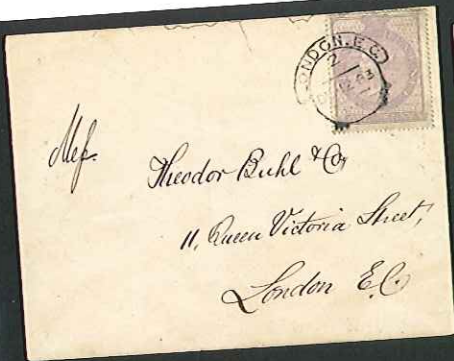 LONDON.E.C
2
Mess. Theodor Buhl & Co,
11, Queen Victoria Street,
London E.C.